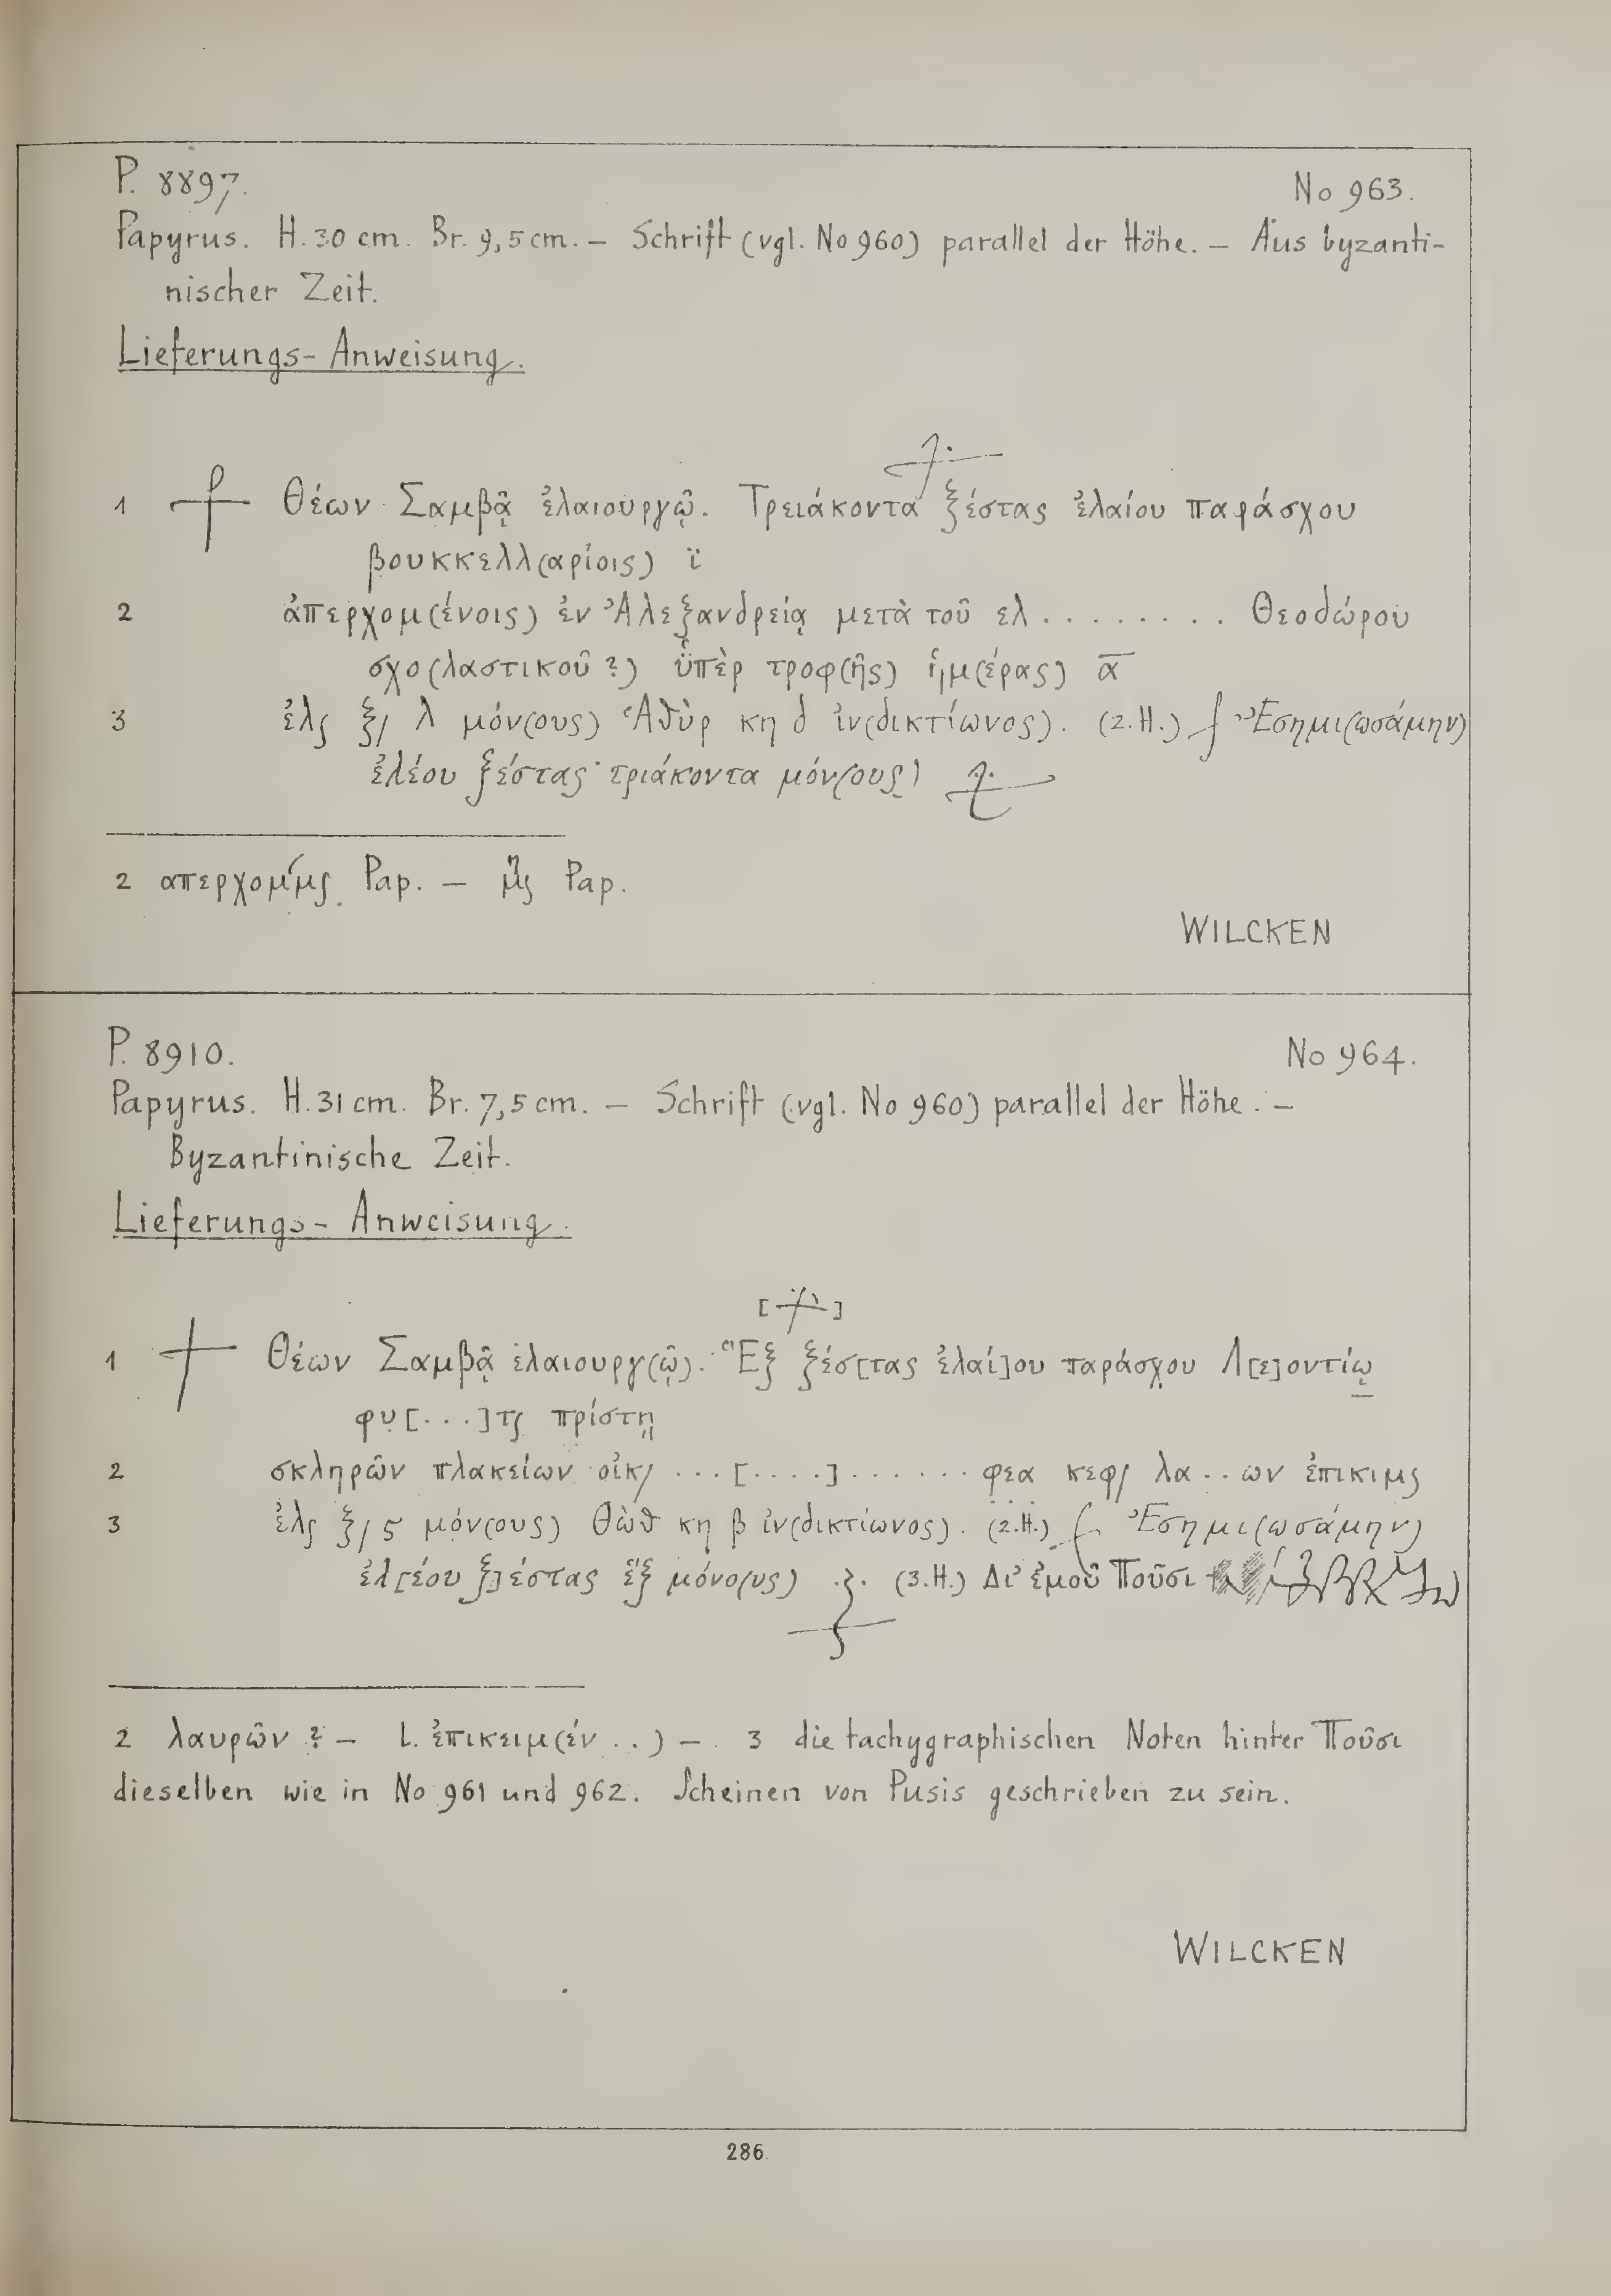 P. 8897. No 963.
Papyrus. H. 30 cm. Br. 9,5 cm. – Schrift (vgl. No 960) parallel der Höhe. – Aus byzanti-
nischer Zeit.
Lieferungs-Anweisung.
1 ⳨ Θέων Σαμβᾷ ἐλαιουργῷ. Τρειάκοντα ξέστας ἐλαίου παράσχου
βουκκελλ(αρίοις) ϊ
2 ἀπερχομ(ένοις) ἐν Ἀλεξανδρείᾳ μετὰ τοῦ ελ ........ Θεοδώρου
σχο(λαστικοῦ?) ϋ̔πὲρ τροφ(ῆς) ἡμ(έρας) α̅
3 ἐλς ξ/ λ μόν(ους) Ἁθὺρ κη δ ἰν(δικτίωνος). (2.H.) ʃ Ἐσημι(ωσάμην)
ἐλέου ξέστας τριάκοντα μόν(ους)
2 απερχομ́μς Pap. – Pap.
WILCKEN
P. 8910. No 964.
Papyrus. H. 31 cm. Br. 7,5 cm. – Schrift (vgl. No 960) parallel der Höhe. –
Byzantinische Zeit.
Lieferungs-Anweisung.
1 † Θέων Σαμβᾷ ἐλαιουργ(ῷ). Ἓξ ξέσ[τας ἐλαί]ου παράσχου Λ[ε]οντίῳ
φυ[...]τς πρίστῃ
2 σκληρῶν πλακείων οἰκ/ ...[....]...... φεα κεφ/ λα..ων ἐπικιμς
3 ἐλς ξ/ ς μόν(ους) Θὼθ κη β ἰν(δικτίωνος). (2.H.) ʃ Ἐσημι(ωσάμην)
ἐλ[έου ξ]έστας ἓξ μόνο(υς) (3.H.) Δι' ἐμοῦ Ποῦσι
2 λαυρῶν? – L. ἐπικειμ(έν..) – 3 die tachygraphischen Noten hinter Ποῦσι
dieselben wie in No 961 und 962. Scheinen von Pusis geschrieben zu sein.
WILCKEN
286